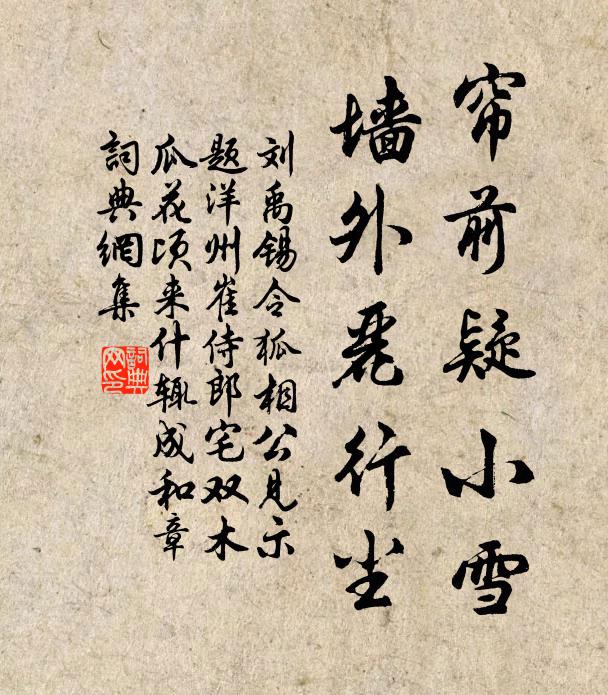 帘前疑小雪
墙外丽行尘
刘禹锡令狐相公见示
题洋州崔侍郎宅双木
瓜花顷来什辄成和章
詞典網集
詞典
网印